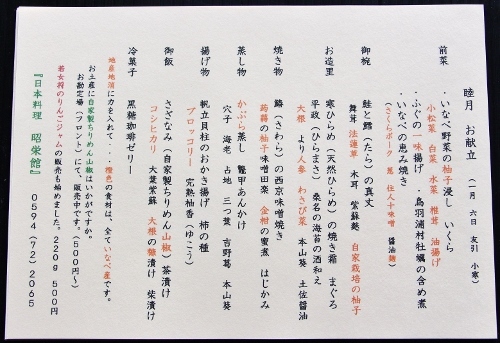 睦月 お献立 (一月 六日 友引 小寒)
前菜 ・いなべ野菜の柚子浸し いくら
小松菜 白菜 水菜 椎茸 油揚げ
・ふぐの一味揚げ ・鳥羽浦村牡蠣の含め煮
・いなべの恵み焼き
(さくらポーク 葱 住人十味噌 醤油麹)
御椀 鮭と鱈(たら)の真丈
舞茸 法蓮草 木耳 紫蘇麩 自家栽培の柚子
お造里 寒ひらめ(天然ひらめ)の焼き霜 まぐろ
平政(ひらまさ) 桑名の海苔の酒和え
大根 より人参 わさび菜 本山葵 土佐醤油
焼き物 鰆(さわら)の西京味噌焼き
蒟蒻の柚子味噌田楽 金柑の蜜煮 はじかみ
蒸し物 かぶら蒸し 鼈甲あんかけ
穴子 海老 占地 三つ葉 吉野葛 本山葵
揚げ物 帆立貝柱のおかき揚げ 柿の種
ブロッコリー 完熟柚香(ゆこう)
御飯 さざなみ(自家製ちりめん山椒)茶漬け
コシヒカリ 大葉紫蘇 大根の糠漬け 柴漬け
冷菓子 黒糖珈琲ゼリー
地産地消に力を入れて・・橙色の食材は、全ていなべ産です。
お土産に自家製ちりめん山椒はいかがですか。
お勘定場(フロント)にて、販売中です。(500円〜)
若女将のりんごジャムの販売も始めました。220g 500円
『日本料理 昭栄館』 0594(72)2065